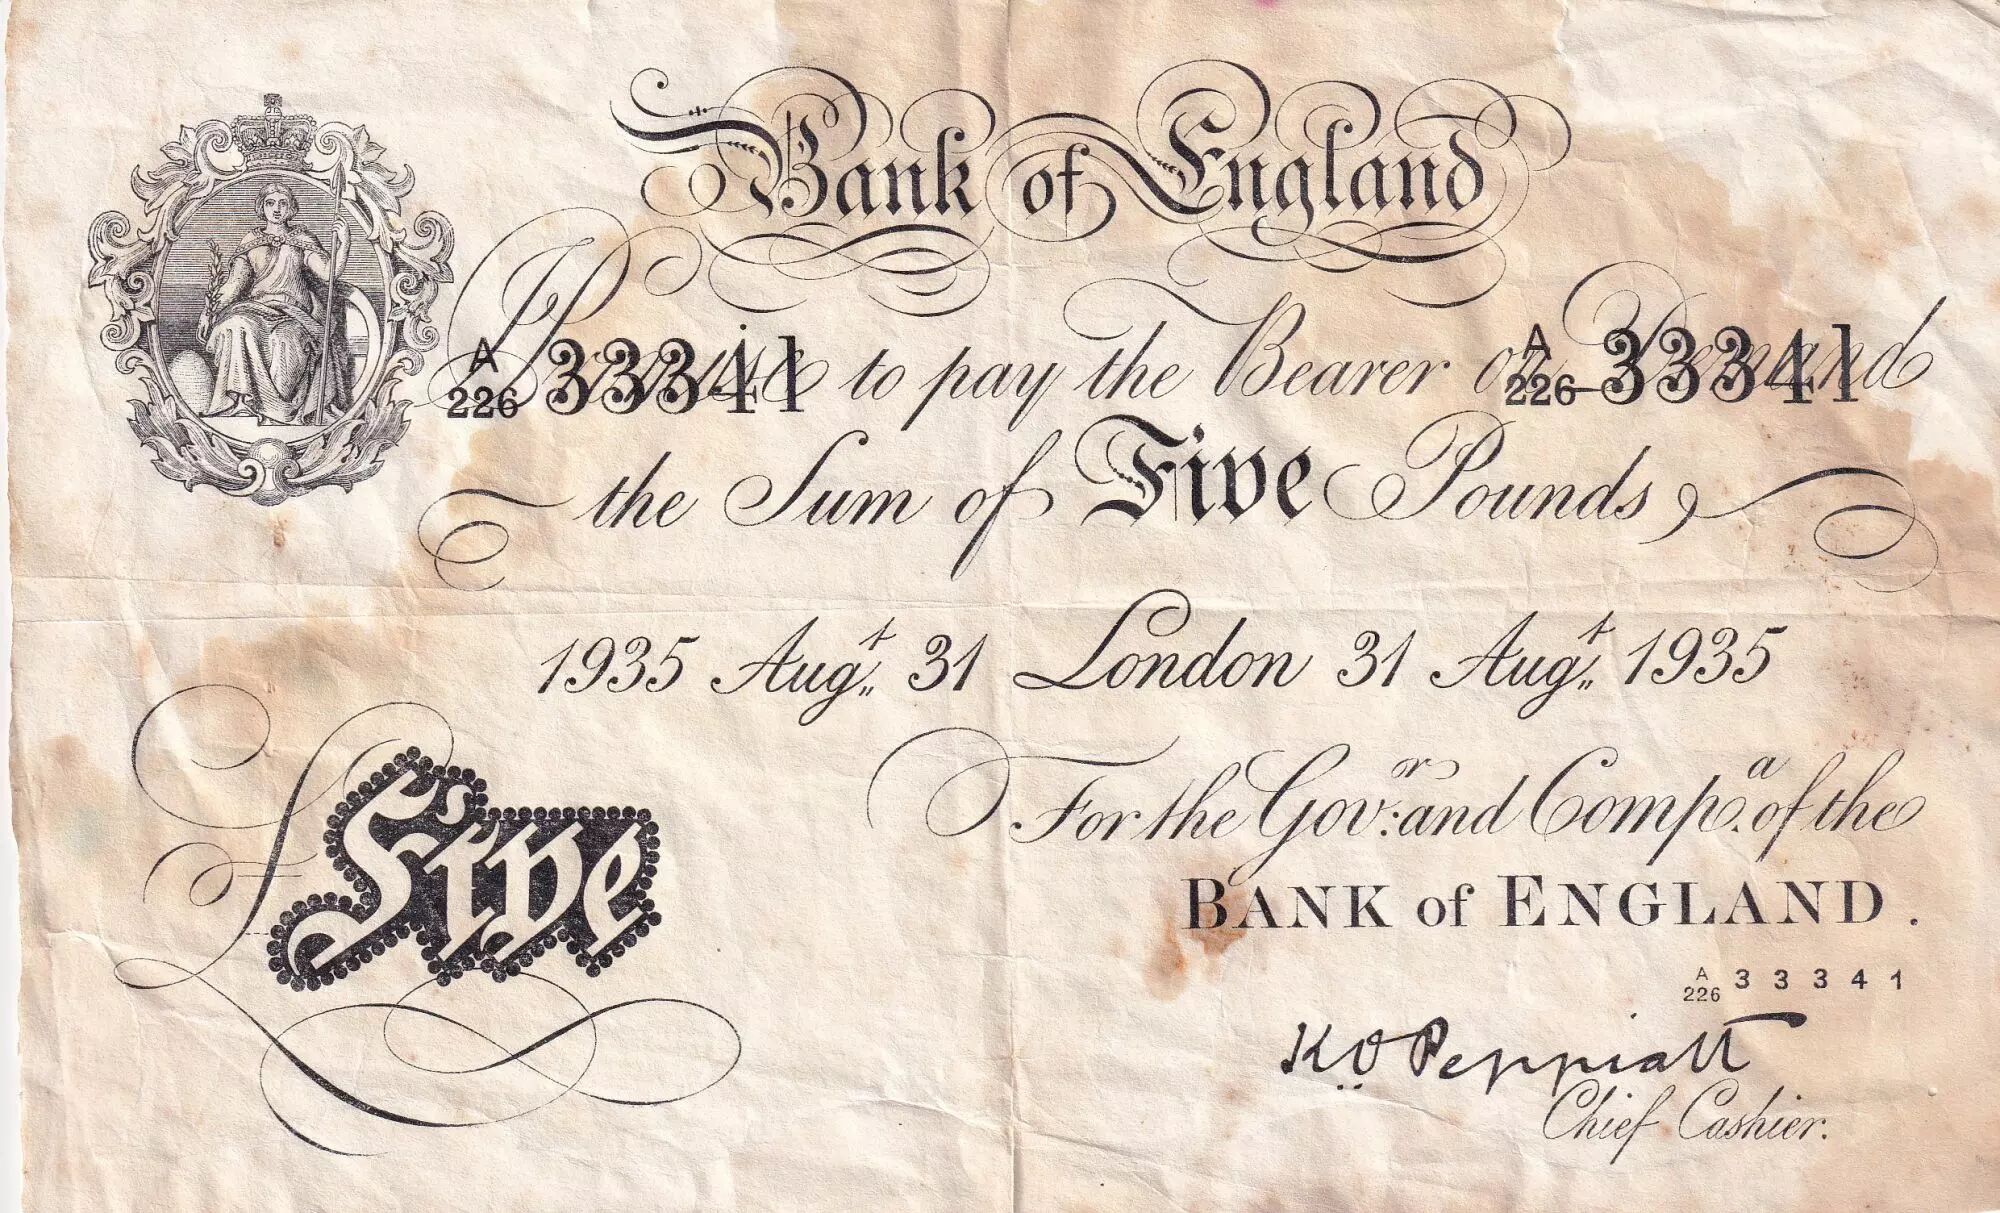 Bank of England
A 226 33341 I Promise to pay the Bearer on Demand A 226 33341
the Sum of Five Pounds,
1935 Augt. 31 London 31 Augt. 1935
For the Govr. and Compa. of the
BANK of ENGLAND.
£Five
A 226 33341
K O Peppiatt
Chief Cashier.